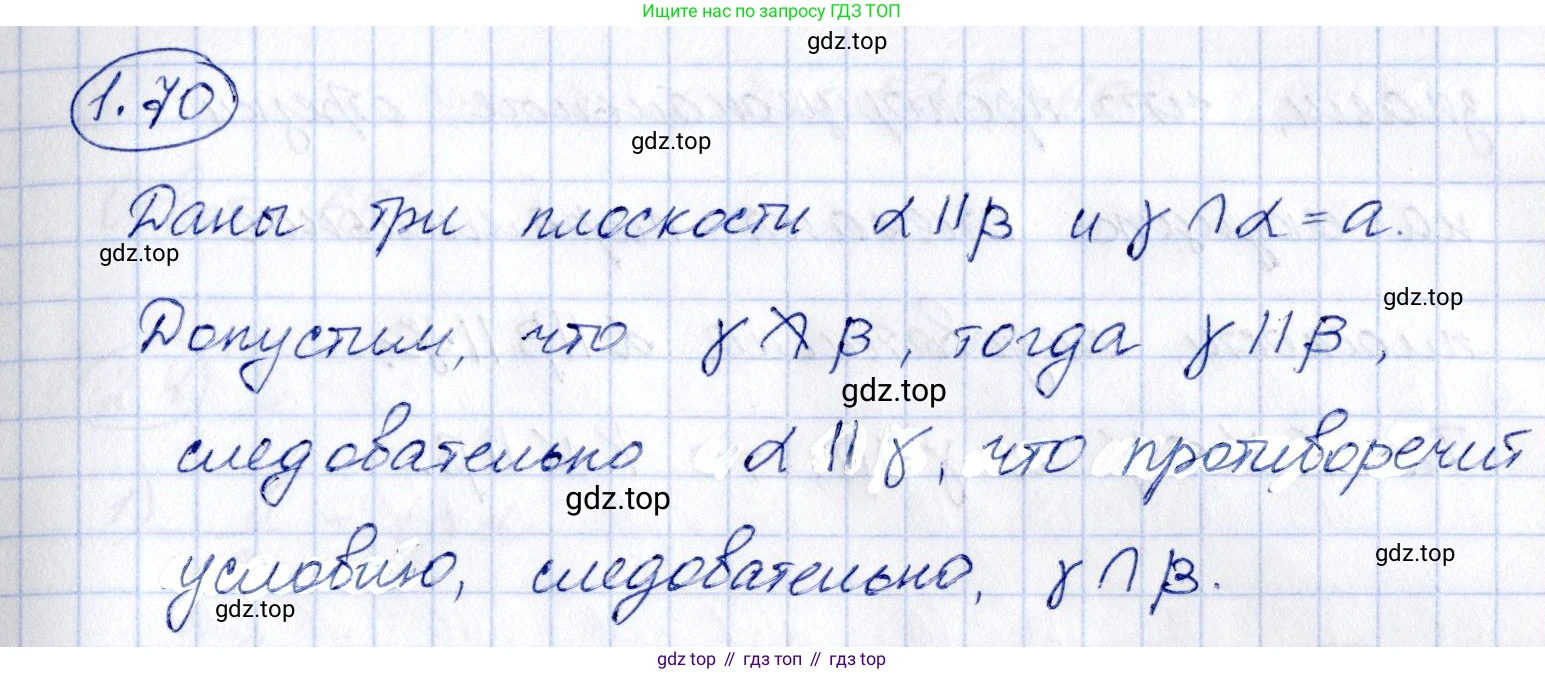 Ищите нас по запросу ГДЗ ТОП
gdz.top
1.70
gdz.top
Даны три плоскости α || β и γ ∩ α = a.
gdz.top
gdz.top
Допустим, что γ ∩̸ β, тогда γ || β,
gdz.top
следовательно α || γ, что противоречит
gdz.top
условию, следовательно, γ ∩ β.
gdz.top
gdz.top
gdz top // гдз топ // gdz.top